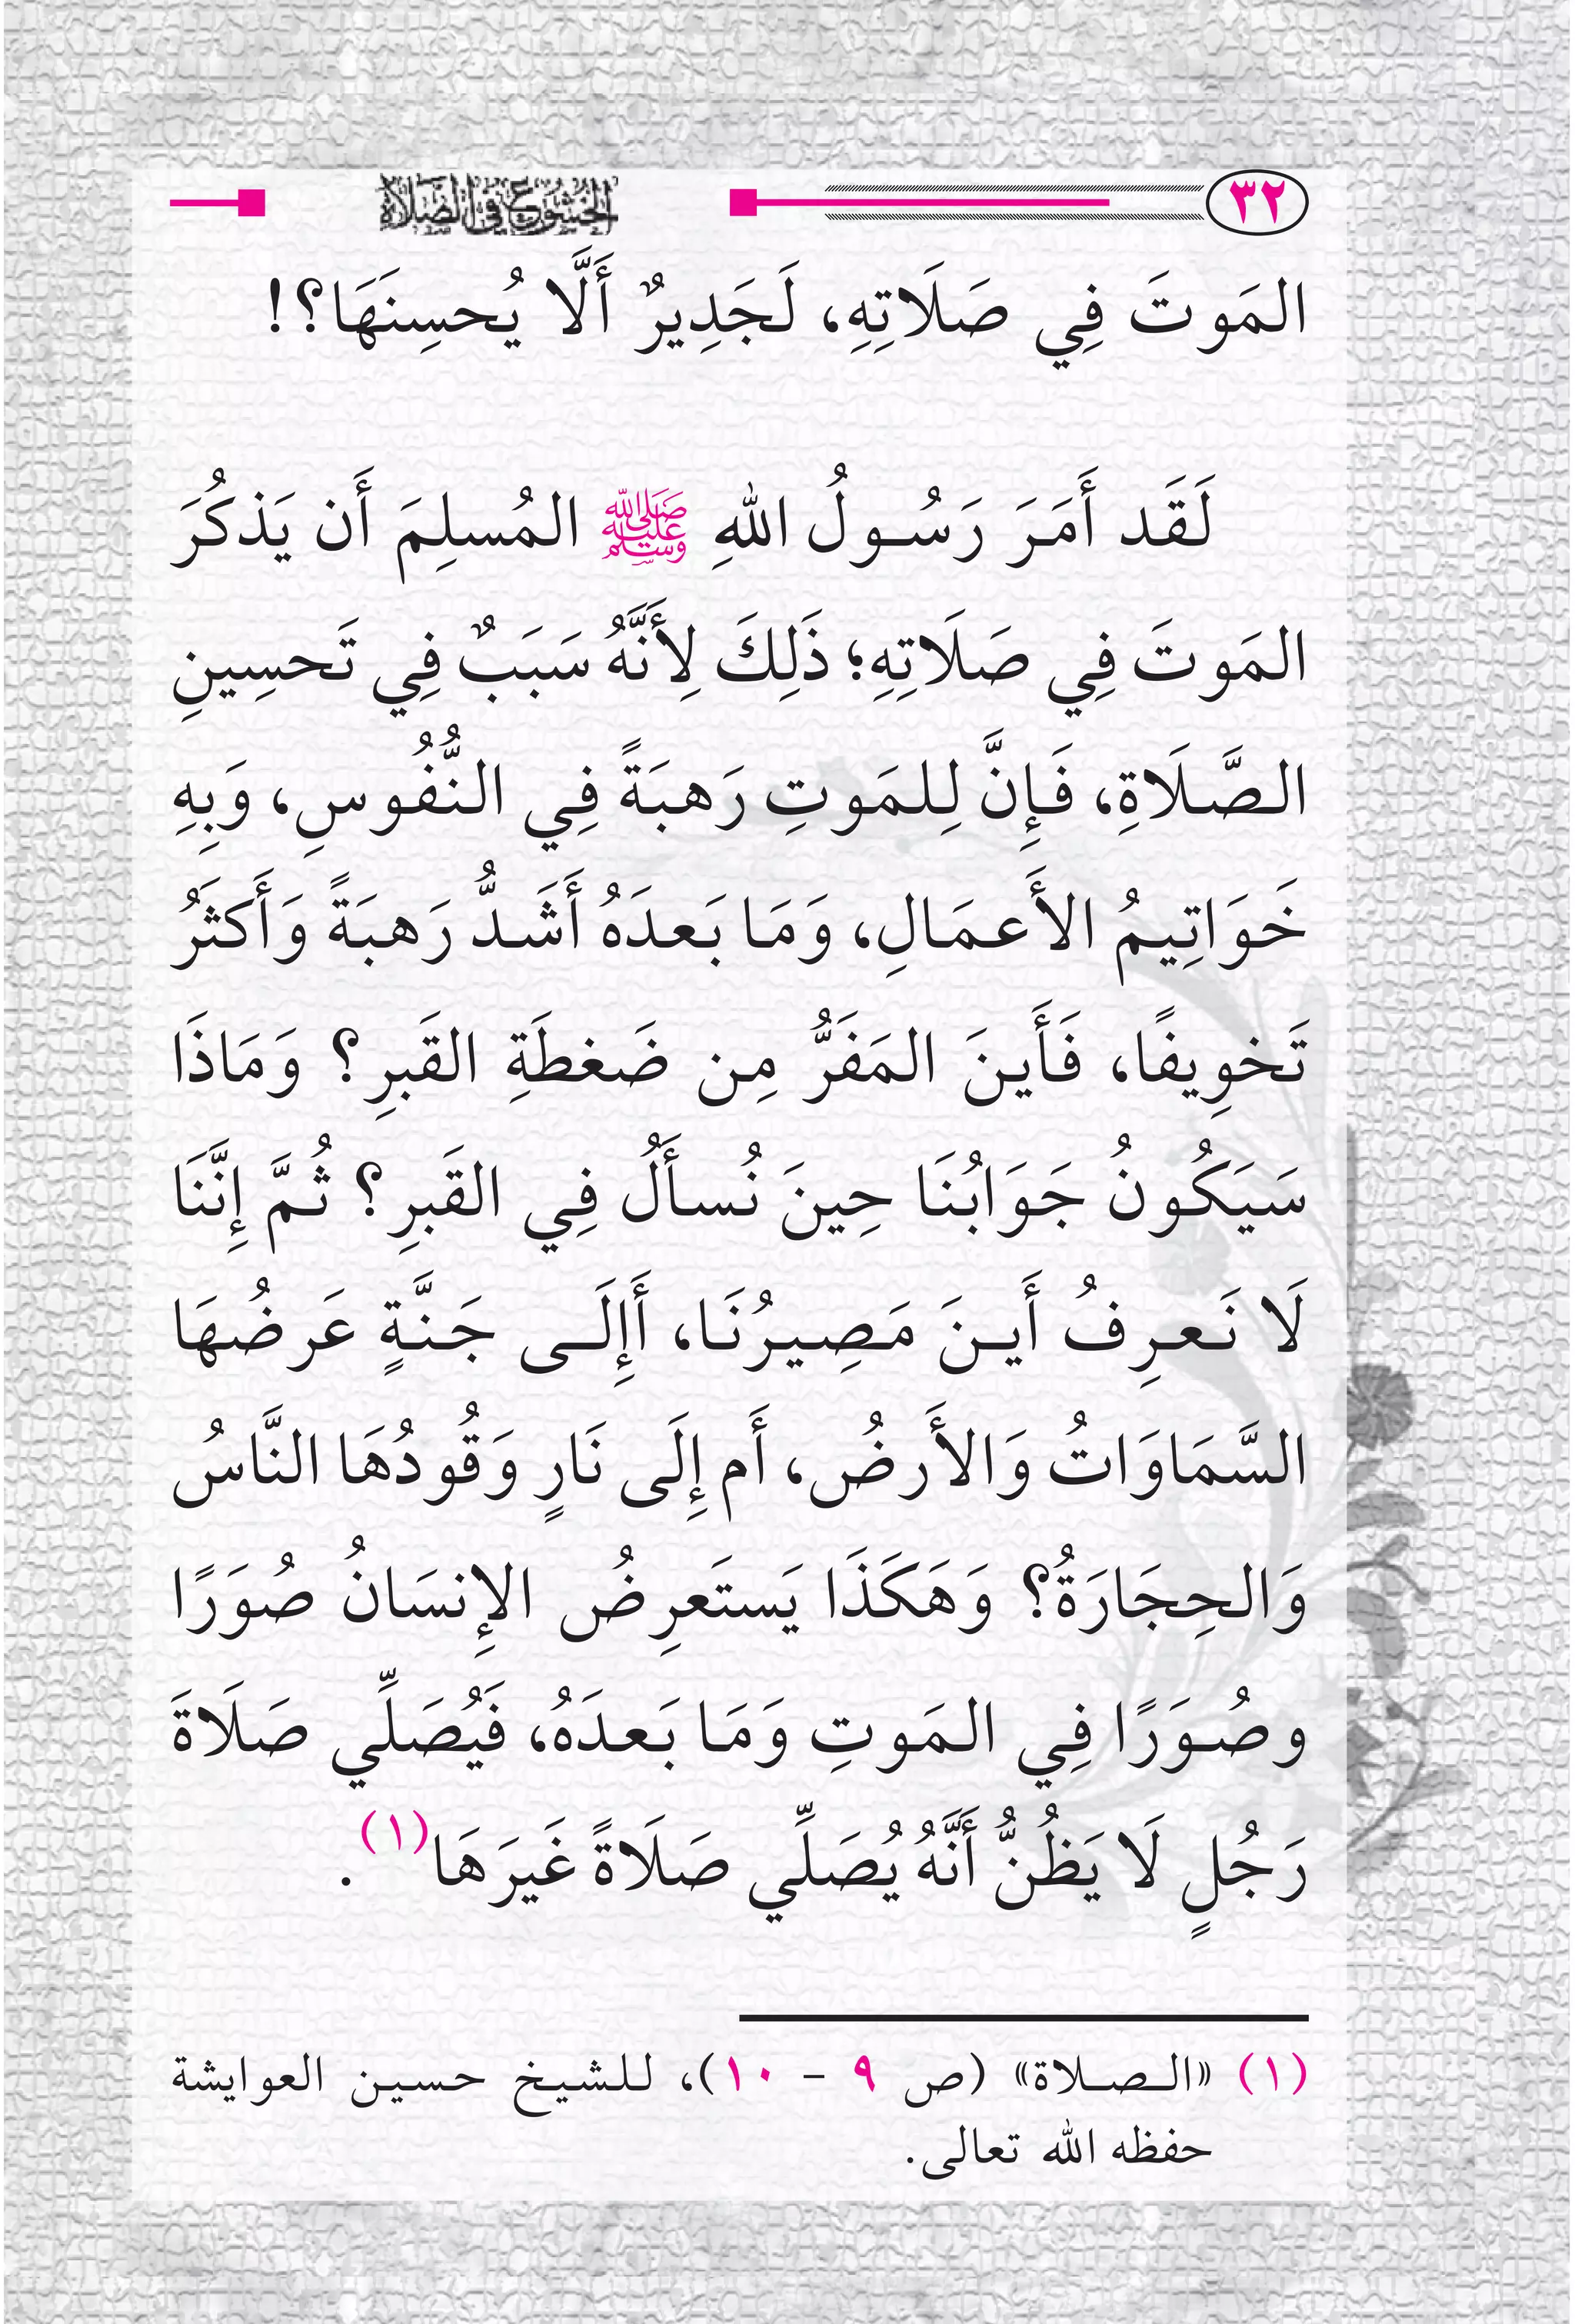 ٣٢
الخشوع في الصلاة
المَوتَ فِي صَلَاتِهِ، لَجَدِيرٌ أَلَّا يُحسِنَهَا؟!
لَقَد أَمَرَ رَسُولُ اللهِ ﷺ المُسلِمَ أَن يَذكُرَ
المَوتَ فِي صَلَاتِهِ؛ ذَلِكَ لِأَنَّهُ سَبَبٌ فِي تَحسِينِ
الصَّلَاةِ، فَإِنَّ لِلمَوتِ رَهبَةً فِي النُّفُوسِ، وَبِهِ
خَوَاتِيمُ الأَعمَالِ، وَمَا بَعدَهُ أَشَدُّ رَهبَةً وَأَكثَرُ
تَخوِيفًا، فَأَينَ المَفَرُّ مِن ضَغطَةِ القَبرِ؟ وَمَاذَا
سَيَكُونُ جَوَابُنَا حِينَ نُسأَلُ فِي القَبرِ؟ ثُمَّ إِنَّنَا
لَا نَعرِفُ أَينَ مَصِيرُنَا، أَإِلَى جَنَّةٍ عَرضُهَا
السَّمَاوَاتُ وَالأَرضُ، أَم إِلَى نَارٍ وَقُودُهَا النَّاسُ
وَالحِجَارَةُ؟ وَهَكَذَا يَستَعرِضُ الإِنسَانُ صُوَرًا
وصُوَرًا فِي المَوتِ وَمَا بَعدَهُ، فَيُصَلِّي صَلَاةَ
رَجُلٍ لَا يَظُنُّ أَنَّهُ يُصَلِّي صَلَاةً غَيرَهَا(١).
(١) «الصلاة» (ص ٩ - ١٠)، للشيخ حسين العوايشة
حفظه الله تعالى.